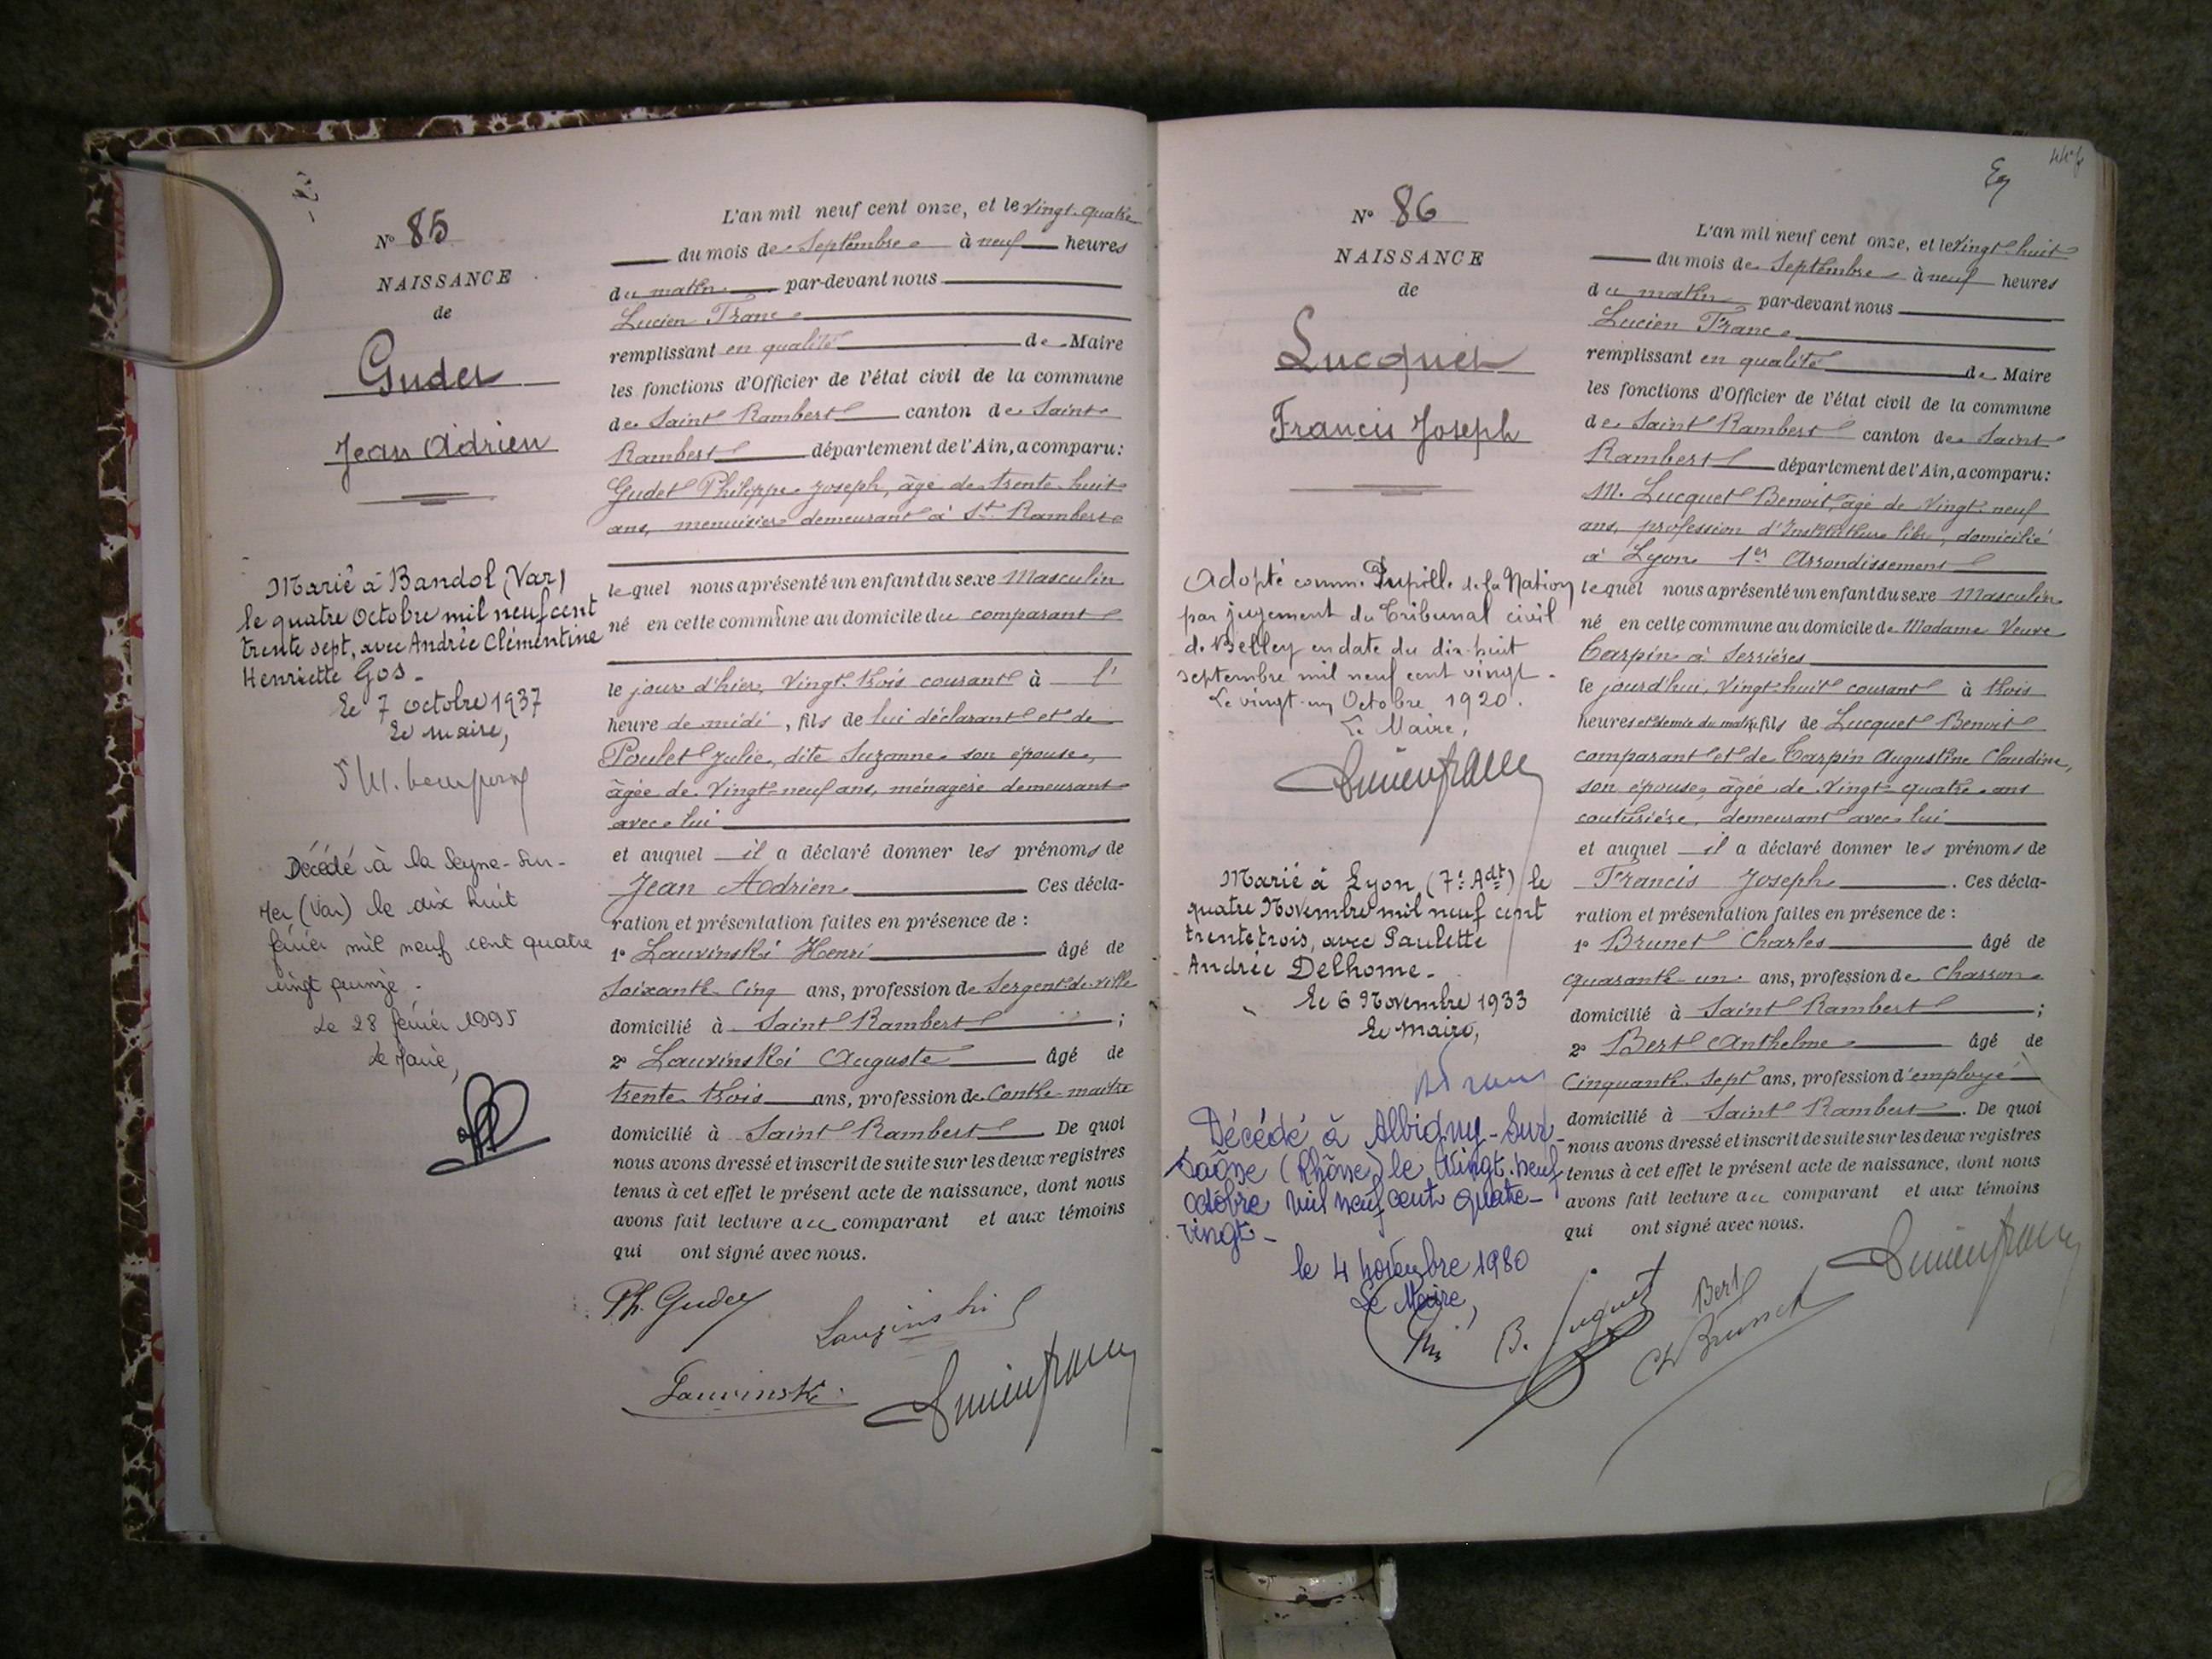 N° 85
NAISSANCE
de
Gudet
Jean Adrien
Marié à Bandol (Var)
le quatre Octobre mil neuf cent
trente sept, avec Andrée Clémentine
Henriette Gos.
Le 7 octobre 1937
Le maire,
Décédé à la Seyne-sur-
Mer (Var) le dix huit
février mil neuf cent quatre
vingt quinze.
Le 28 février 1995
Le Maire,
L'an mil neuf cent onze, et le vingt-quatre
du mois de Septembre à neuf heures
du matin par-devant nous
Lucien Franc
remplissant en qualité de Maire
les fonctions d'Officier de l'état civil de la commune
de Saint Rambert canton de Saint
Rambert département de l'Ain, a comparu:
Gudet Philippe Joseph, âgé de trente-huit
ans, menuisier demeurant à St Rambert
lequel nous a présenté un enfant du sexe Masculin
né en cette commune au domicile du comparant
le jour d'hier, vingt-trois courant à l'
heure de midi, fils de lui déclarant et de
Poulet Julie, dite Suzanne son épouse,
âgée de vingt-neuf ans, ménagère demeurant
avec lui
et auquel il a déclaré donner les prénoms de
Jean Adrien Ces décla-
ration et présentation faites en présence de :
1° Lauvinski Henri âgé de
soixante-cinq ans, profession de Sergent de ville
domicilié à Saint Rambert ;
2° Lauvinski Auguste âgé de
trente-trois ans, profession de Contre-maître
domicilié à Saint Rambert De quoi
nous avons dressé et inscrit de suite sur les deux registres
tenus à cet effet le présent acte de naissance, dont nous
avons fait lecture au comparant et aux témoins
qui ont signé avec nous.
Ph. Gudet
Lauvinski
Lucien Franc
N° 86
NAISSANCE
de
Lucquet
Francis Joseph
Adopté comme Pupille de la Nation
par jugement du Tribunal civil
de Belley en date du dix-huit
septembre mil neuf cent vingt.
Le vingt-un Octobre 1920.
Le Maire,
Lucien Franc
Marié à Lyon (7e Adt) le
quatre Novembre mil neuf cent
trente trois, avec Paulette
Andrée Delhome.
Le 6 Novembre 1933
Le maire,
Décédé à Albigny-sur-
Saône (Rhône) le vingt-neuf
octobre mil neuf cent quatre-
vingt.
le 4 novembre 1980
Le Maire,
L'an mil neuf cent onze, et le vingt-huit
du mois de Septembre à neuf heures
du matin par-devant nous
Lucien Franc
remplissant en qualité de Maire
les fonctions d'Officier de l'état civil de la commune
de Saint Rambert canton de Saint
Rambert département de l'Ain, a comparu:
M. Lucquet Benoit, âgé de vingt-neuf
ans, profession d'Instituteur libre, domicilié
à Lyon 1er Arrondissement
lequel nous a présenté un enfant du sexe Masculin
né en cette commune au domicile de Madame Veuve
Carpin à Serrières
le jourd'hui, vingt-huit courant à trois
heures et demie du matin, fils de Lucquet Benoit
comparant et de Carpin Augustine Claudine,
son épouse, âgée de vingt-quatre ans
couturière, demeurant avec lui
et auquel il a déclaré donner les prénoms de
Francis Joseph. Ces décla-
ration et présentation faites en présence de :
1° Brunet Charles âgé de
quarante-un ans, profession de Charron
domicilié à Saint Rambert ;
2° Bert Anthelme âgé de
Cinquante-sept ans, profession d'employé
domicilié à Saint Rambert. De quoi
nous avons dressé et inscrit de suite sur les deux registres
tenus à cet effet le présent acte de naissance, dont nous
avons fait lecture au comparant et aux témoins
qui ont signé avec nous.
B. Luquet
Bert
Ch Brunet
Lucien Franc